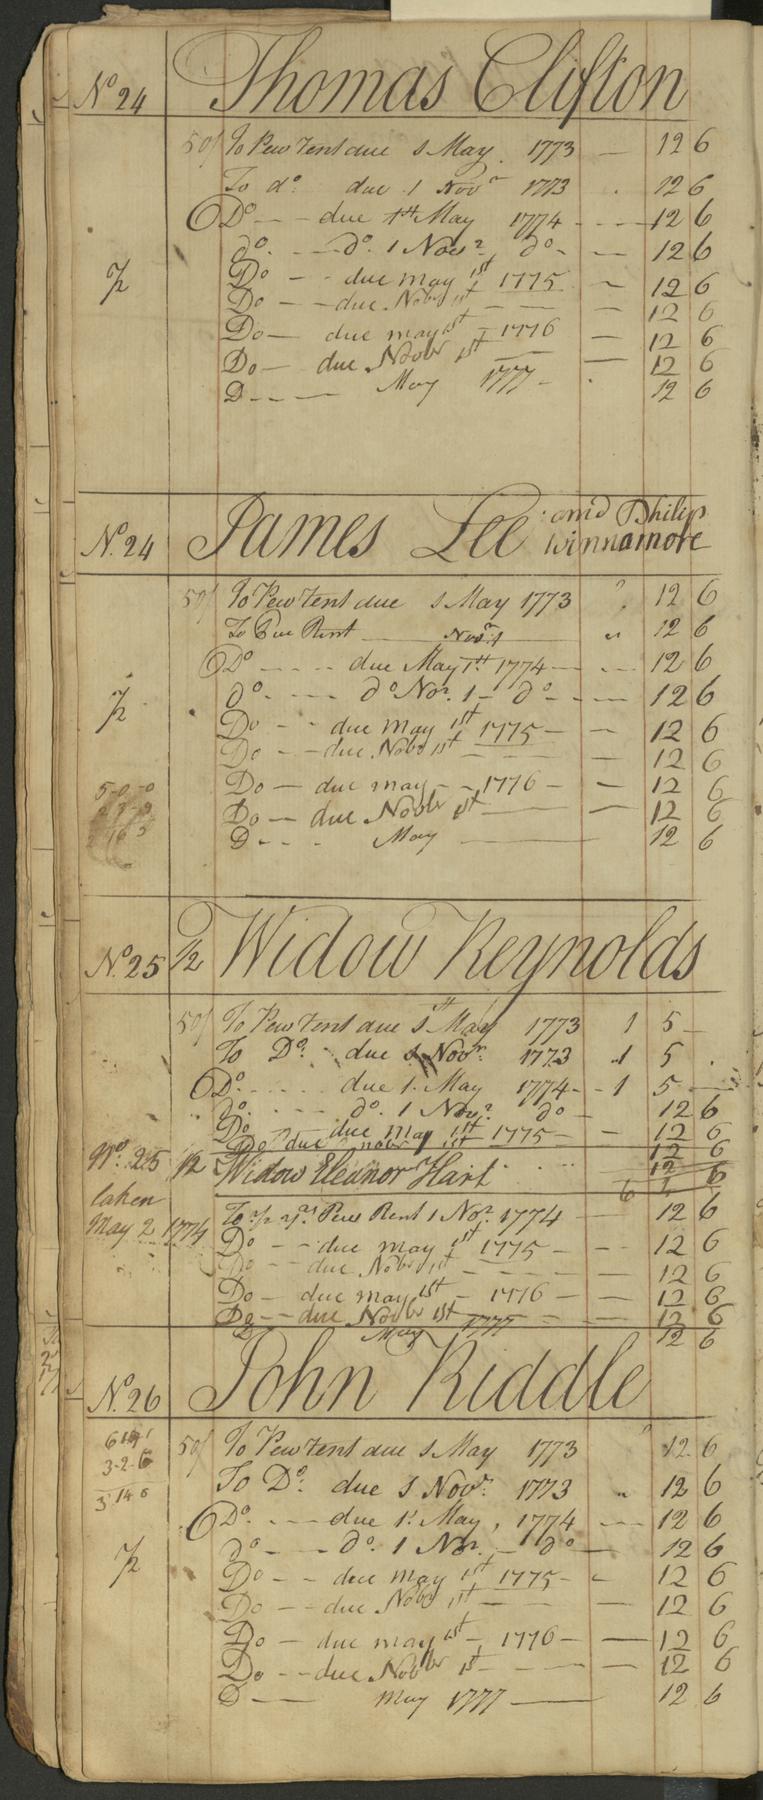 No. 24 Thomas Clifton
50/ To Pew Rent due 1 May 1773 — 12 6
To do. due 1 Novr 1773 . 12 6
Do — — due 1st May 1774 — — 12 6
do. — — do. 1 Novr. do — — 12 6
1/2 Do — - due may 1st 1775 — 12 6
Do — — due Nobr 1st — — — 12 6
Do — due may 1st 1776 — 12 6
Do — due Novbr 1st — — 12 6
D — — May 1777 - . 12 6
No. 24 James Lee and Philip
Winnamore
50/ To Pew Rent due 1 May 1773 " 12 6
To Pue Rent — Novr. 1 — " 12 6
Do — - - due May 1st 1774 — — 12 6
do. - — do Nor. 1 — do - — 12 6
1/2 Do — - due may 1st 1775 — — 12 6
Do — — due Nobr 1st — — — 12 6
Do — due may — 1776 — — 12 6
5-0-0
Do — due Novbr 1st — — 12 6
D - - May — 12 6
No. 25 1/2 Widow Reynolds
50/ To Pew Rent due 1st May 1773 1 5 —
To Do. due 1 Novr. 1773 1 5 .
Do. due 1. May 1774 - - 1 5 —
do. - - do. 1 Nov. do — 12 6
Do due may 1st 1775 — — 12 6
Do due nobr 1st 12 6
No. 25 1/2 Widow Eleanor Hart
taken
May 2 1774
To 1/2 yrs Pew Rent 1 Nor. 1774 — 12 6
Do — - due may 1st 1775 — - — 12 6
Do — due Nobr 1st — — — 12 6
Do — due may 1st — 1776 — — 12 6
Do — — due Novbr 1st — — — 12 6
D May 1777 12 6
No. 26 John Riddle
3-2-6
50/ To Pew Rent due 1 May 1773 " 12 6
To Do. due 1 Novr. 1773 " 12 6
Do. - — due 1. May, 1774 — 12 6
do — — do. 1 Nor. — do — 12 6
1/2 Do — - due may 1st 1775 - - 12 6
Do — — due Nobr 1st — — — 12 6
Do — due may 1st - 1776 — — 12 6
Do — - due Novbr 1st — — — 12 6
D — — may 1777 — 12 6